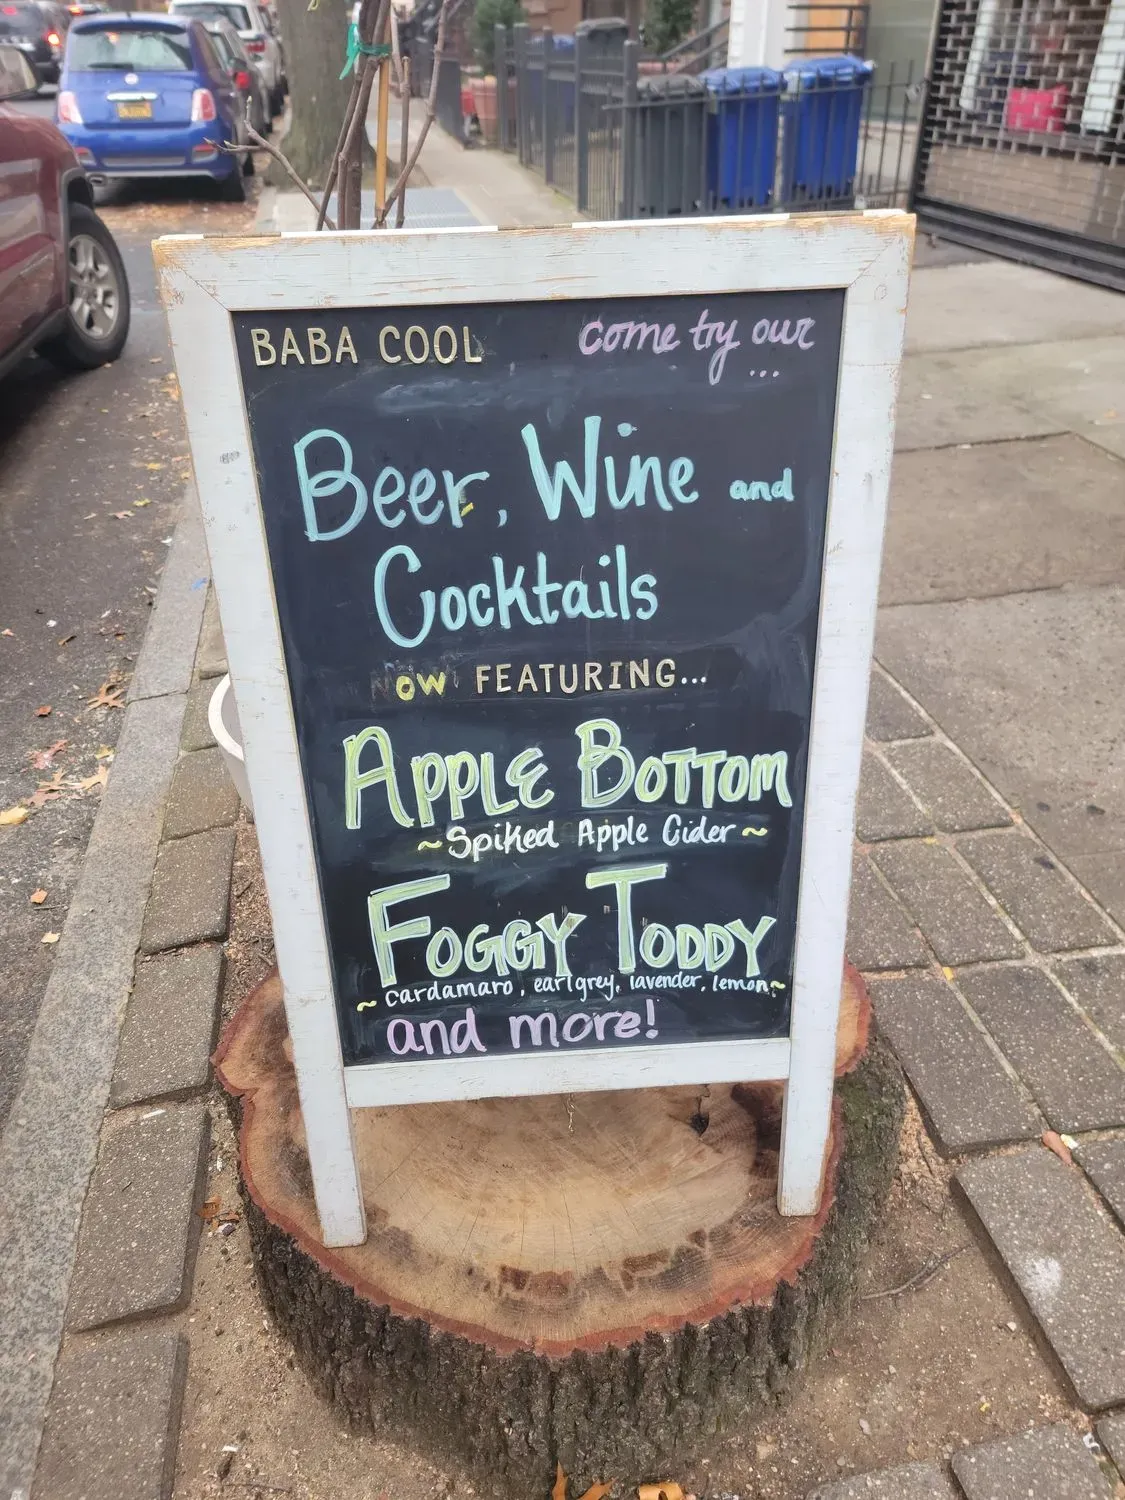 BABA COOL
come try our
...
Beer, Wine and
Cocktails
NOW FEATURING...
APPLE BOTTOM
~Spiked Apple Cider~
FOGGY TODDY
~cardamaro, earl grey, lavender, lemon~
and more!